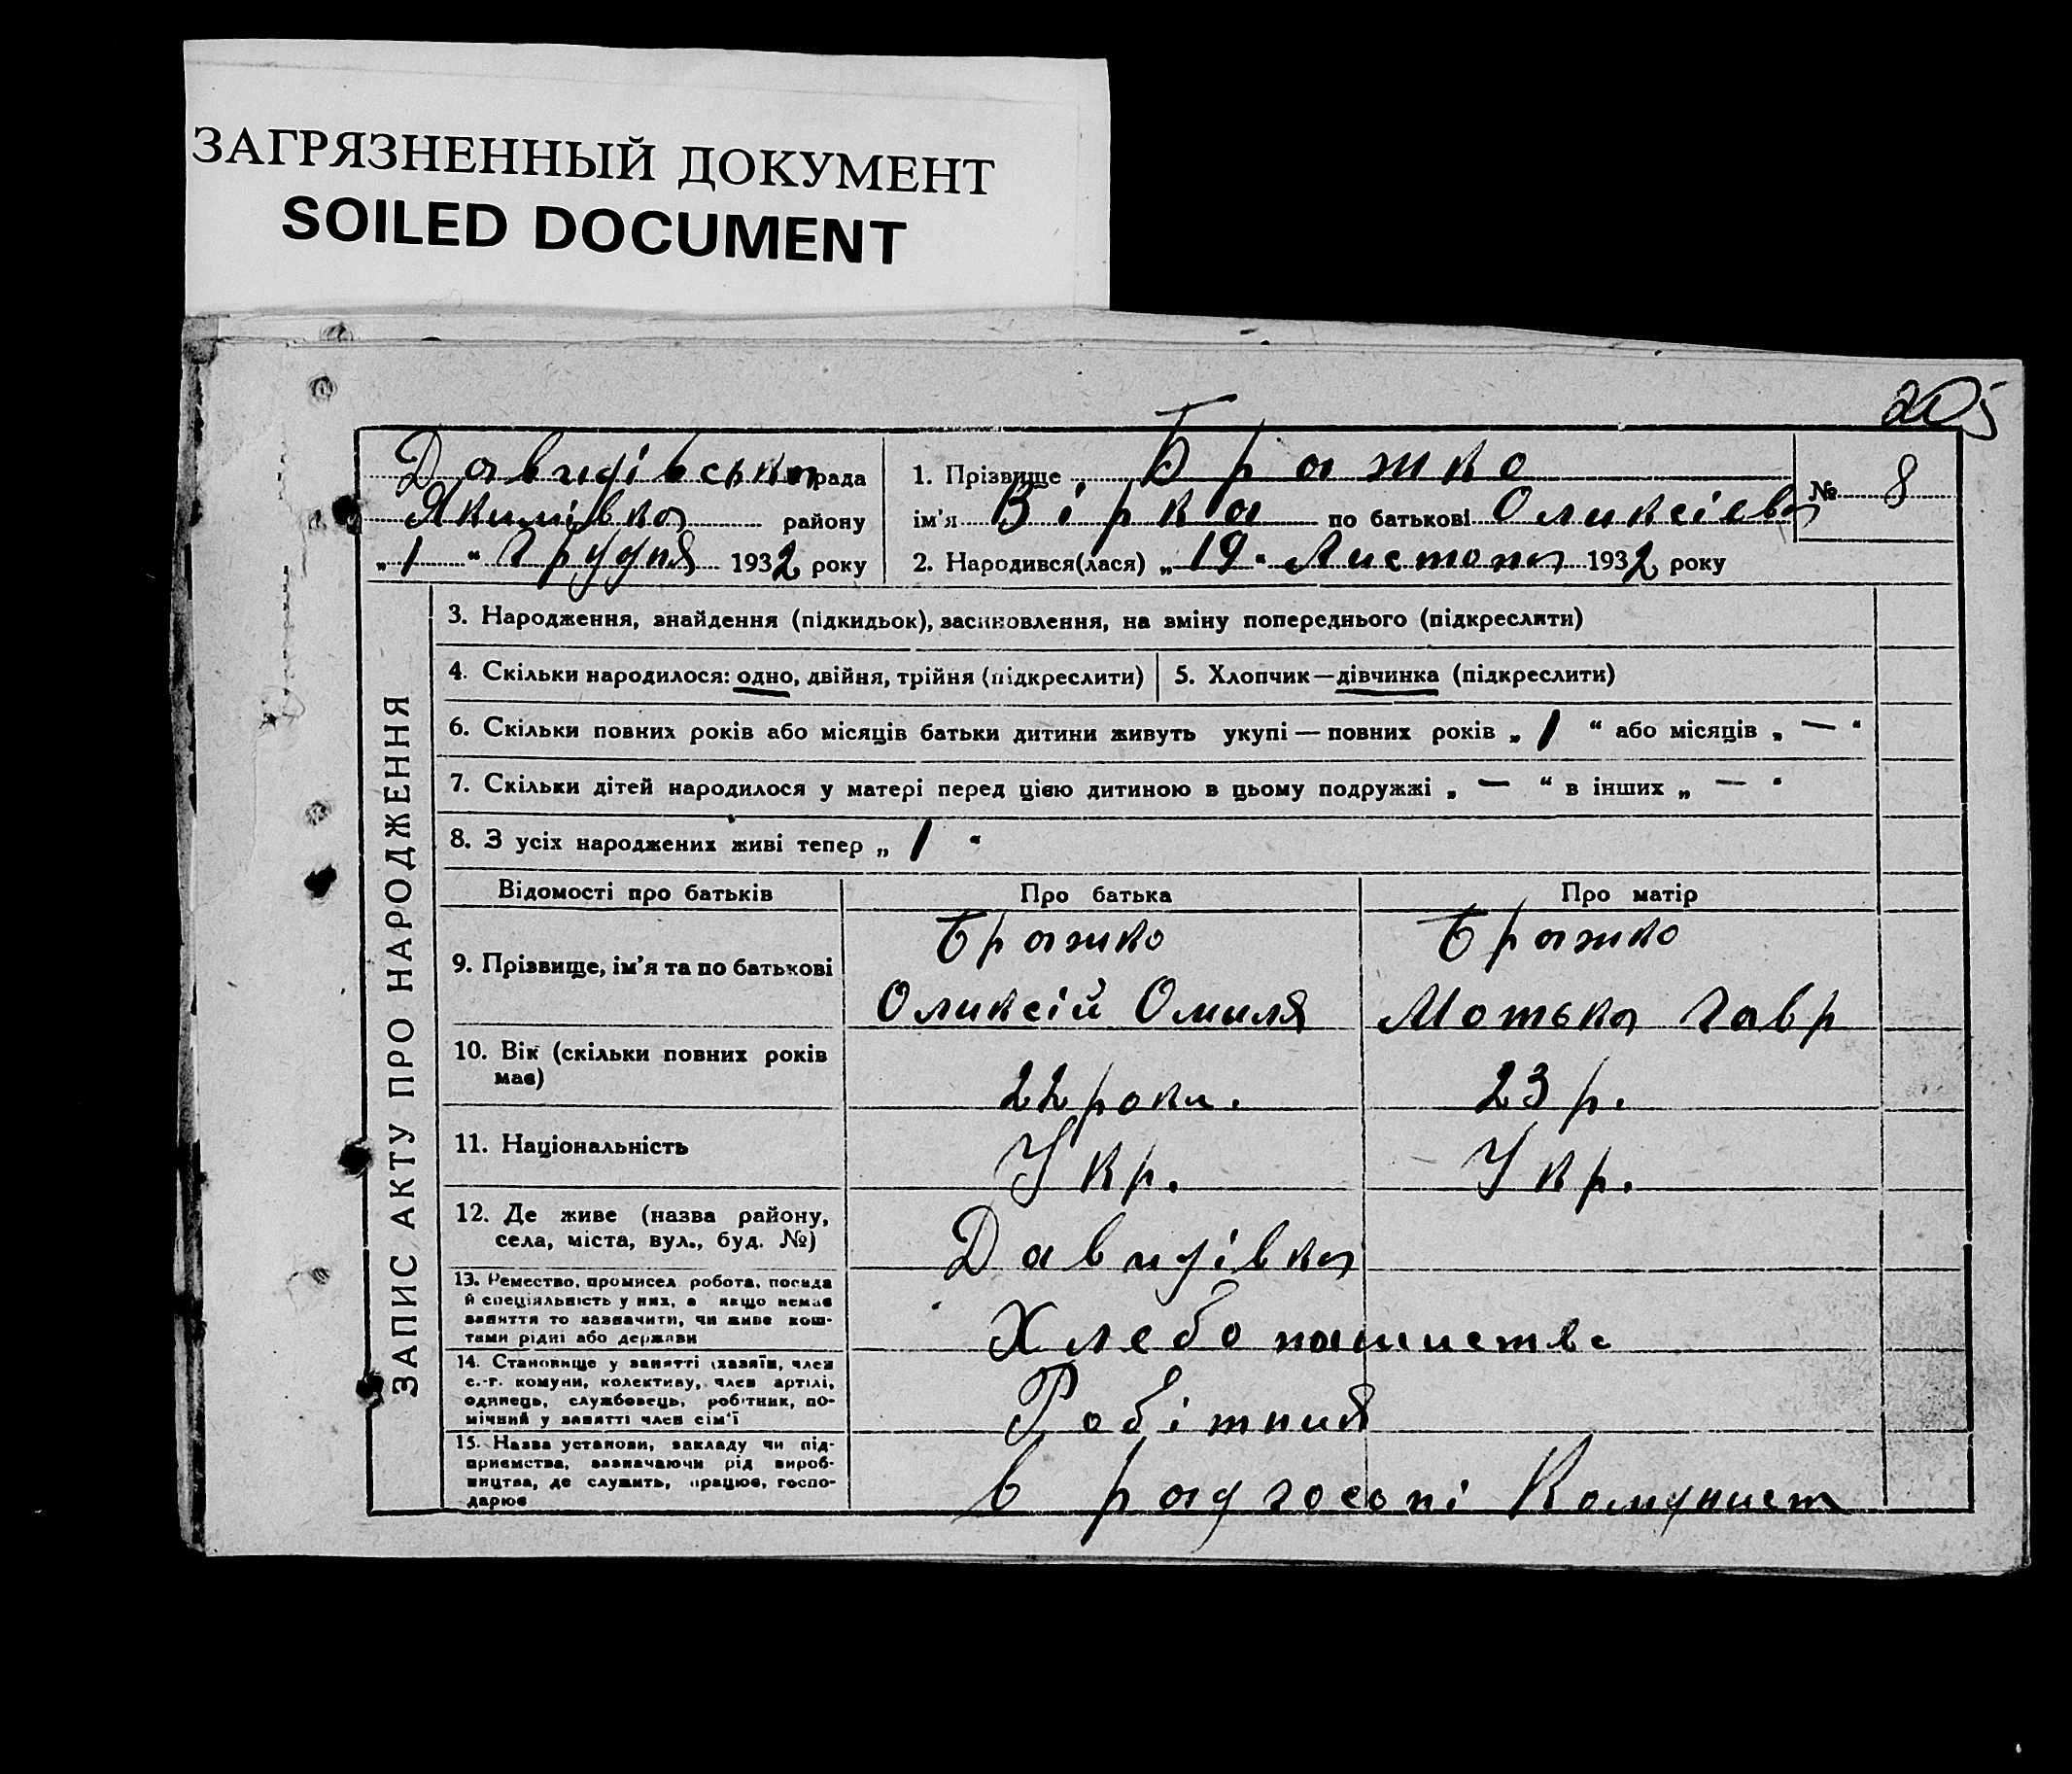 ЗАГРЯЗНЕННЫЙ ДОКУМЕНТ
SOILED DOCUMENT
205
Давидівська рада
Якимівка району
„1“ Грудня 1932 року
1. Прізвище Бражко
ім'я Вірка по батькові Оликсіева
№ 8
2. Народився(лася) „19“ Листопа 1932 року
ЗАПИС АКТУ ПРО НАРОДЖЕННЯ
3. Народження, знайдення (підкидьок), засиновлення, на зміну попереднього (підкреслити)
4. Скільки народилося: одно, двійня, трійня (підкреслити)
5. Хлопчик—дівчинка (підкреслити)
6. Скільки повних років або місяців батьки дитини живуть укупі — повних років „1“ або місяців „—“
7. Скільки дітей народилося у матері перед цією дитиною в цьому подружжі „—“ в інших „—“
8. З усіх народжених живі тепер „1“
Відомості про батьків
Про батька
Про матір
9. Прізвище, ім'я та по батькові
Бражко
Оликсій Омиля
Бражко
Мотька Гавр
10. Вік (скільки повних років
має)
22 роки.
23 р.
11. Національність
Укр.
Укр.
12. Де живе (назва району,
села, міста, вул., буд. №)
Давидівка
13. Ремество, промисел робота, посада
й спеціяльність у них, а якщо немає
заняття то зазначити, чи живе кош-
тами рідні або держави
Хлебопашиство
14. Становище у занятті (хазяїн, член
с.-г. комуни, колективу, член артілі,
одинець, службовець, робітник, по-
мічний у занятті член сім'ї
Робітния
15. Назва установи, закладу чи під-
приємства, зазначаючи рід вироб-
ництва, де служить, працює, госпо-
дарює
в радгоспі Комунист